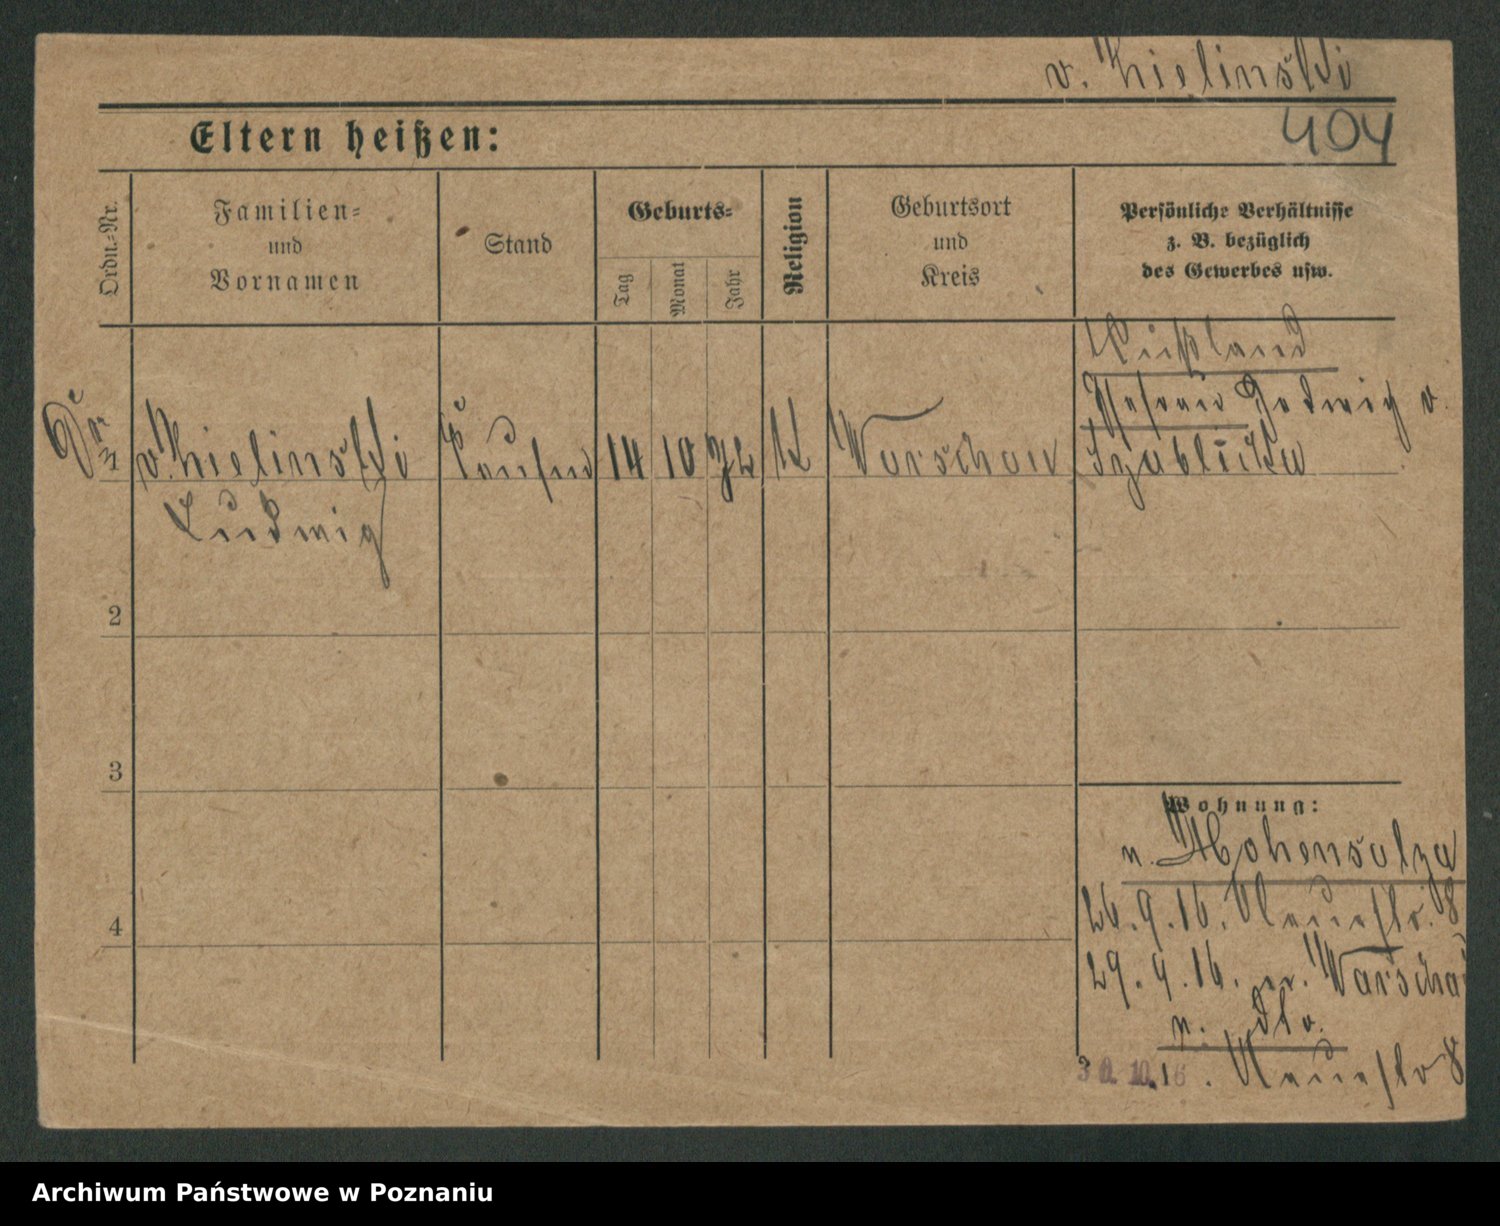 v. Zielinski
404
Eltern heißen:
Ordn.-Nr.
Familien-
und
Vornamen
Stand
Geburts-
Tag
Monat
Jahr
Religion
Geburtsort
und
Kreis
Persönliche Verhältnisse
z. B. bezüglich
des Gewerbes usw.
Rußland
v. Zielinski 14 10 72 K Warschau
Ludwig
2
3
4
Wohnung:
n. Hohensalza
26.9.16. Neuestr. 8
29.9.16. v. Warschau
n. dto.
30.10.16. Neuestr 8
Archiwum Państwowe w Poznaniu